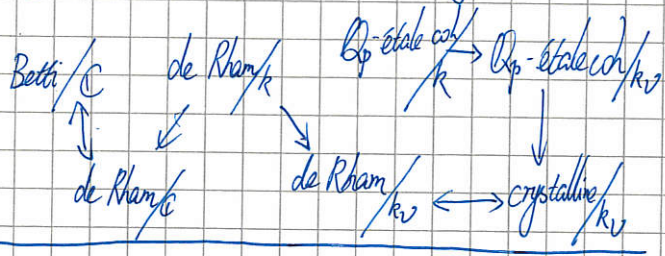 Betti/ℂ de Rham/k ℚp-étale coh/k → ℚp-étale coh/kv
de Rham/ℂ de Rham/kv ↔ crystalline/kv